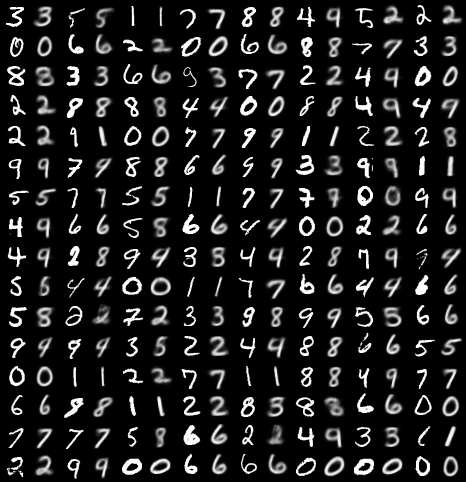 3 3 5 5 1 1 7 7 8 8 4 9 5 2 2 2
0 0 6 6 2 2 0 0 6 6 8 8 7 7 3 3
8 8 3 3 6 6 9 3 7 7 2 2 4 9 0 0
2 2 8 8 8 8 4 4 0 0 8 8 4 9 4 9
2 2 9 1 0 0 7 7 9 9 1 1 2 2 2 8
9 9 7 9 8 8 6 6 9 9 3 3 9 9 1 1
5 5 7 7 5 5 1 1 7 7 7 7 0 0 9 9
4 9 6 6 5 8 6 6 4 4 0 0 2 2 6 6
4 9 2 8 9 4 3 3 4 9 2 8 7 9 9 4
5 6 4 4 0 0 1 1 7 7 6 6 4 4 6 6
5 8 2 2 7 2 3 3 9 8 9 9 5 5 6 6
9 9 9 9 3 5 2 2 4 4 8 8 6 6 5 5
0 0 1 1 2 2 7 7 1 1 8 8 4 9 7 7
6 6 8 8 1 1 2 2 8 3 8 8 6 6 0 0
7 7 7 7 5 8 6 6 2 2 4 9 3 3 6 1
2 2 9 9 0 0 6 6 6 6 0 0 0 0 0 0